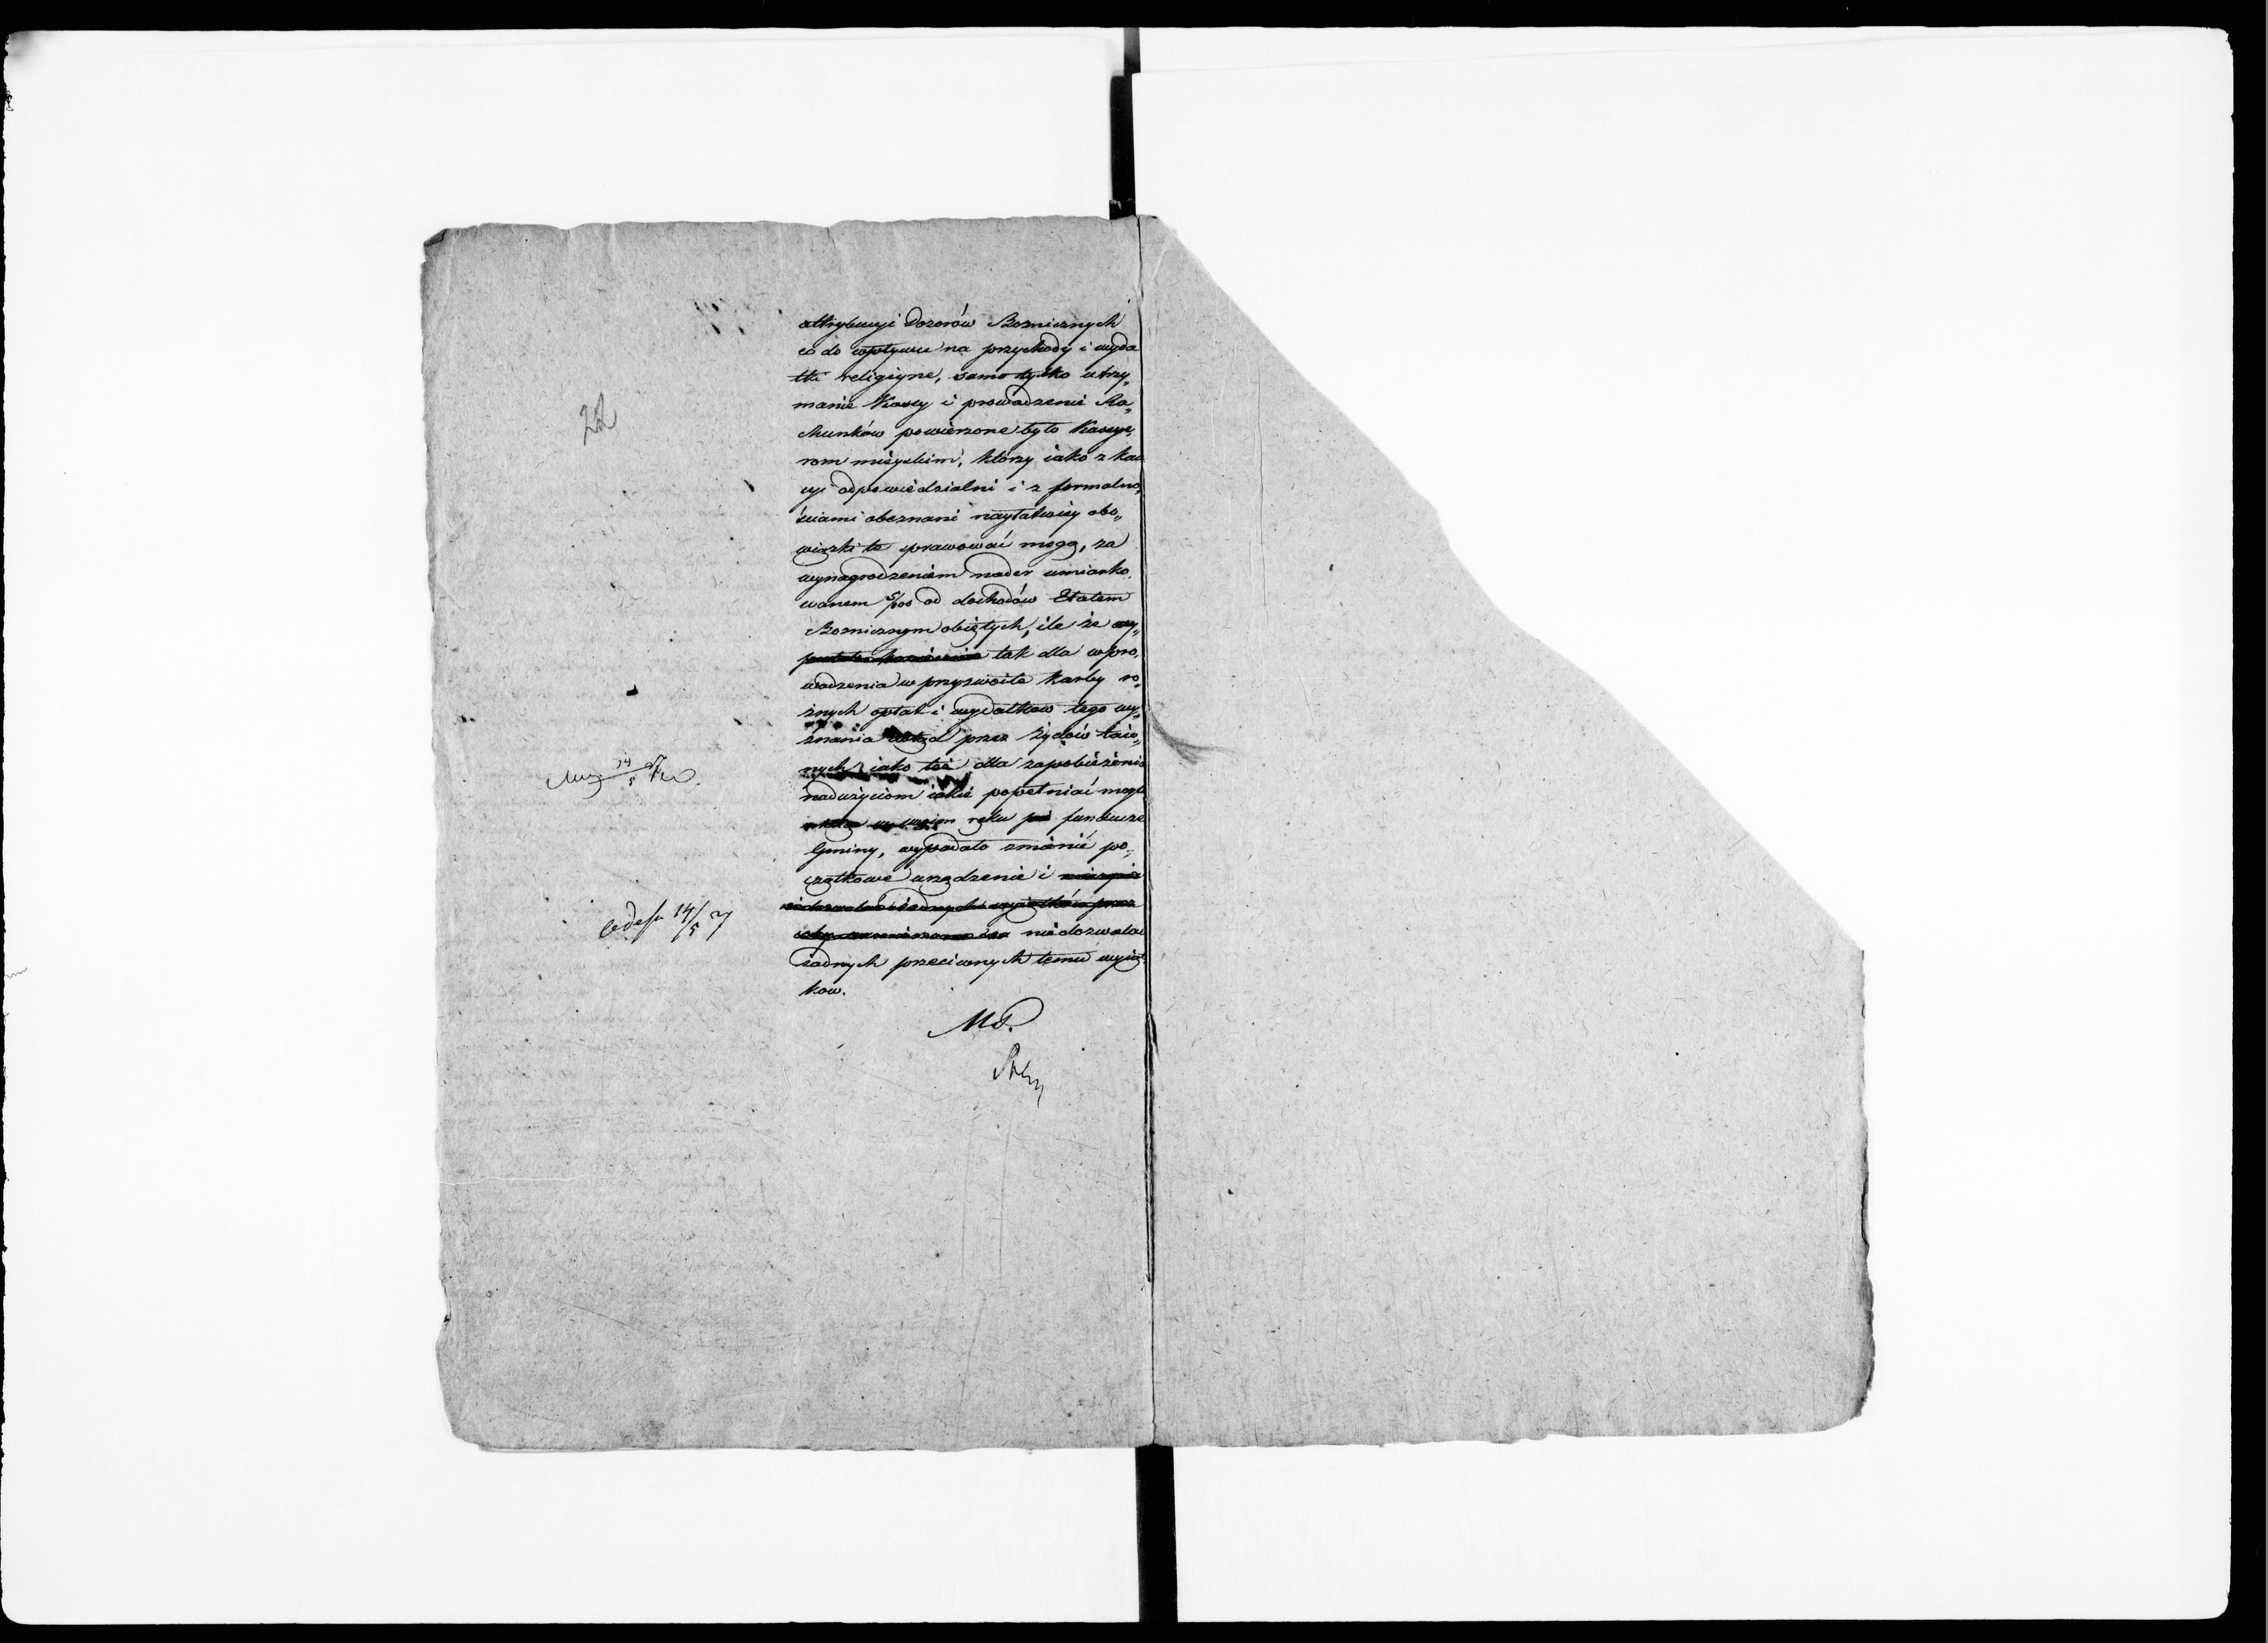 attrybucyi Dozorów Boznicznych
co do wpływu na przychody i wyda
tki religiyne, samo tylko utrzy„
manie Kassy i prowadzenie Ra„
chunków powierzone było Kassye„
rom mieyskim, którzy iako z kau
cyi odpowiedzialni i z formalno„
ściami obeznani nayłatwiey obo„
wiązki te sprawować mogą, za
wynagrodzeniem nader umiarko„
wanem 5/100 od dochodów Etatem
Boznicznym obiętych, ile że wy„
tak dla wpro„
wadzenia w przyzwoite karby ro„
żnych opłat i wydatkow tego wy„
znania przez żydów taio„
nych iako też dla zapobieżenia
nadużyciom iakie popełniać mogli
w swoim ręku fundusze
Gminy, wypadało zmienić po„
czątkowe urządzenie i
niedozwalać
żadnych przeciwnych temu wyiąt
kow.
22
14/5
14/5